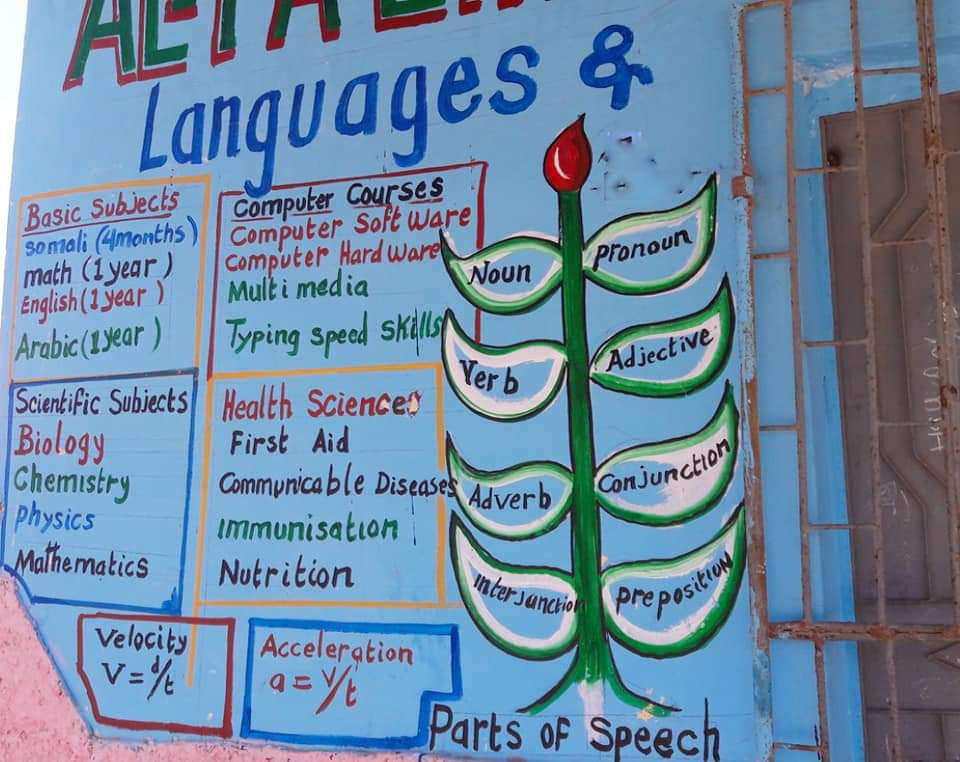 Languages &
Basic Subjects
somali (4months)
math (1 year)
English (1 year)
Arabic (1year)
Computer Courses
Computer Soft Ware
Computer Hard Ware
Multi media
Typing speed skills
Scientific Subjects
Biology
Chemistry
physics
Mathematics
Health Sciences
First Aid
Communicable Diseases
immunisation
Nutrition
Velocity
V = d/t
Acceleration
a = v/t
Noun
pronoun
Verb
Adjective
Adverb
Conjunction
interjunction
preposition
Parts of Speech